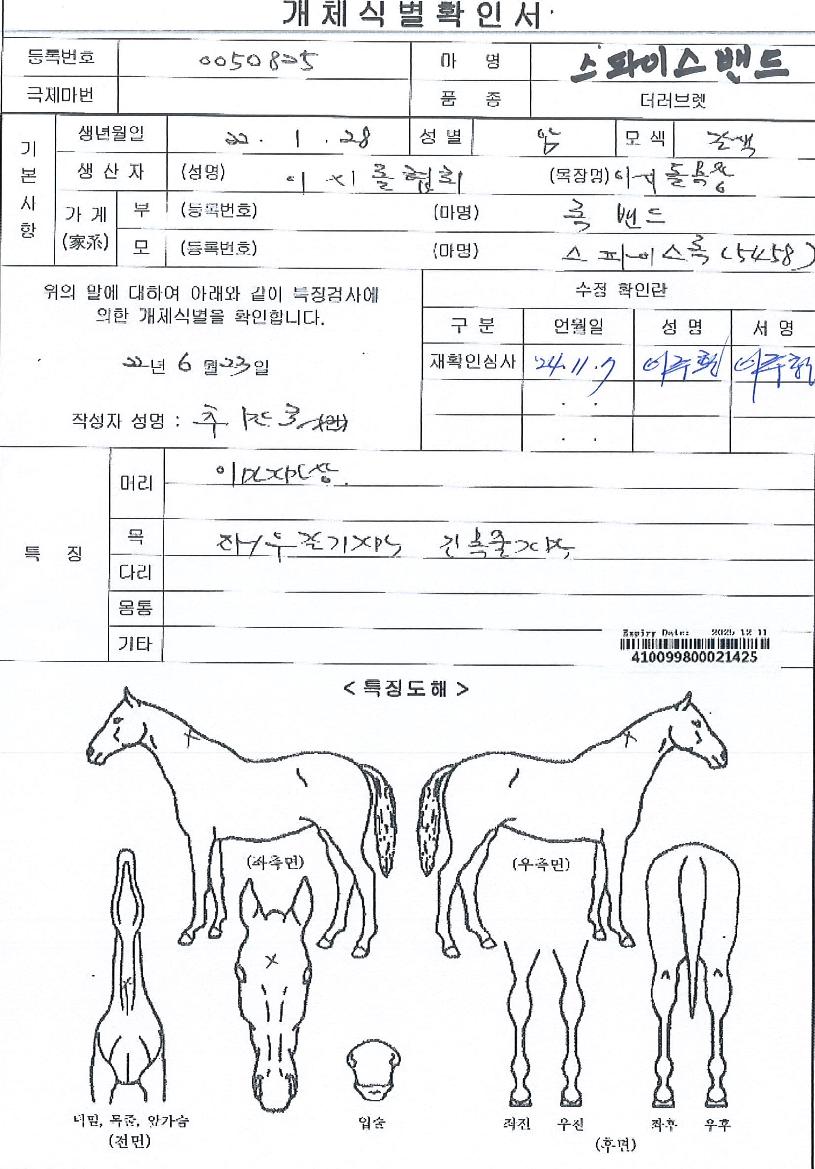 개체식별확인서
등록번호 0050825 마 명 스파이스밴드
국제마번 품 종 더러브렛
기본사항
생년월일 22. 1. 28 성별 암 모색 갈색
생산자 (성명) 이시돌협회 (목장명) 이시돌목장
가계 (家系)
부 (등록번호) (마명) 록밴드
모 (등록번호) (마명) 스파이스록(5458)
위의 말에 대하여 아래와 같이 특징검사에
의한 개체식별을 확인합니다.
22년 6월 23일
작성자 성명 : (인)
수정 확인란
구분 언월일 성명 서명
재확인심사 '24.11.7
. .
. .
특 징
머리
목
다리
몸통
기타
Expiry Date: 2025 12 11
410099800021425
< 특징도해 >
(좌측면) (우측면)
턱밑, 목줄, 앞가슴
(전면)
입술
좌전 우전 좌후 우후
(후면)